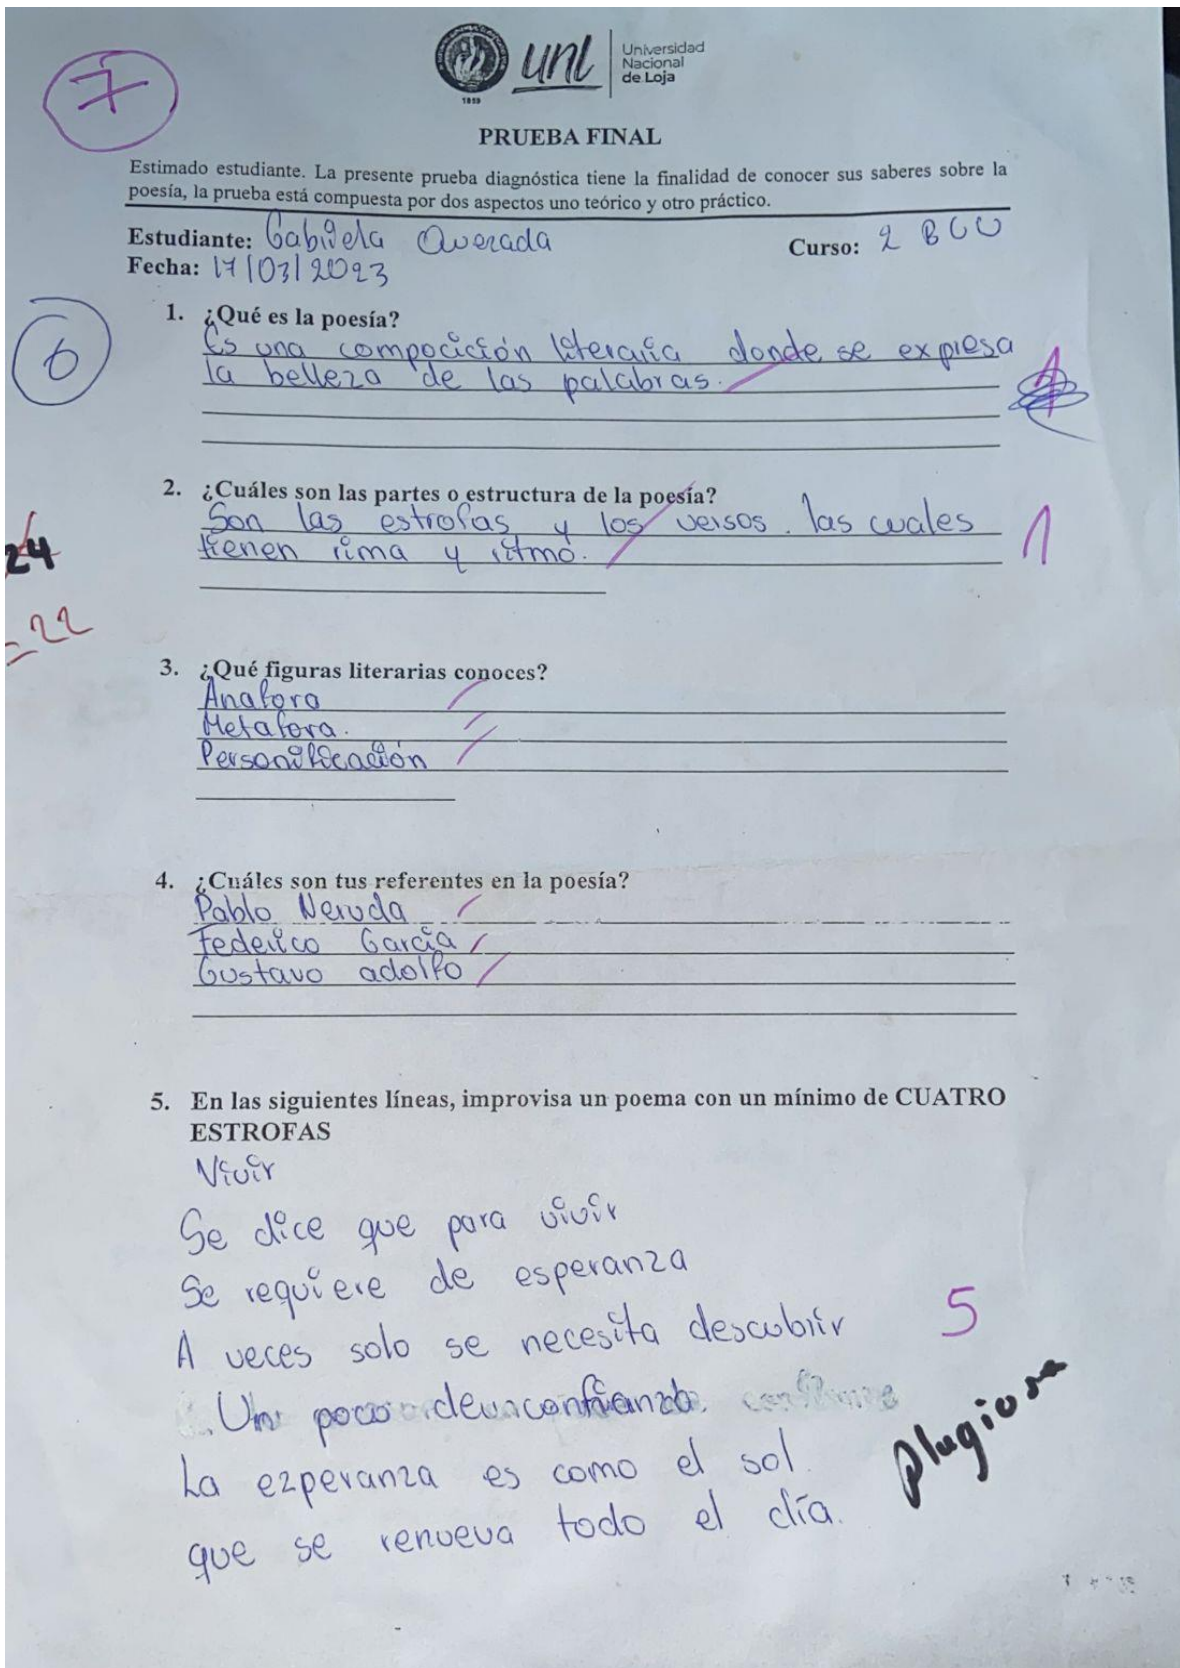 7
1859
unl
Universidad
Nacional
de Loja
PRUEBA FINAL
Estimado estudiante. La presente prueba diagnóstica tiene la finalidad de conocer sus saberes sobre la
poesía, la prueba está compuesta por dos aspectos uno teórico y otro práctico.
Estudiante: Gabriela Quezada Curso: 2 BGU
Fecha: 17/03/2023
6
1. ¿Qué es la poesía?
Es una compocición literaria donde se expresa
la belleza de las palabras.
1
2. ¿Cuáles son las partes o estructura de la poesía?
Son las estrofas y los versos. las cuales
tienen rima y ritmo.
1
24
=22
3. ¿Qué figuras literarias conoces?
Anafora
Metafora.
Personificación
4. ¿Cuáles son tus referentes en la poesía?
Pablo Neruda
Federico García
Gustavo adolfo
5. En las siguientes líneas, improvisa un poema con un mínimo de CUATRO
ESTROFAS
Vivir
Se dice que para vivir
Se requiere de esperanza
A veces solo se necesita descubrir
Un poco de confianza.
La ezperanza es como el sol.
que se renueva todo el día.
5